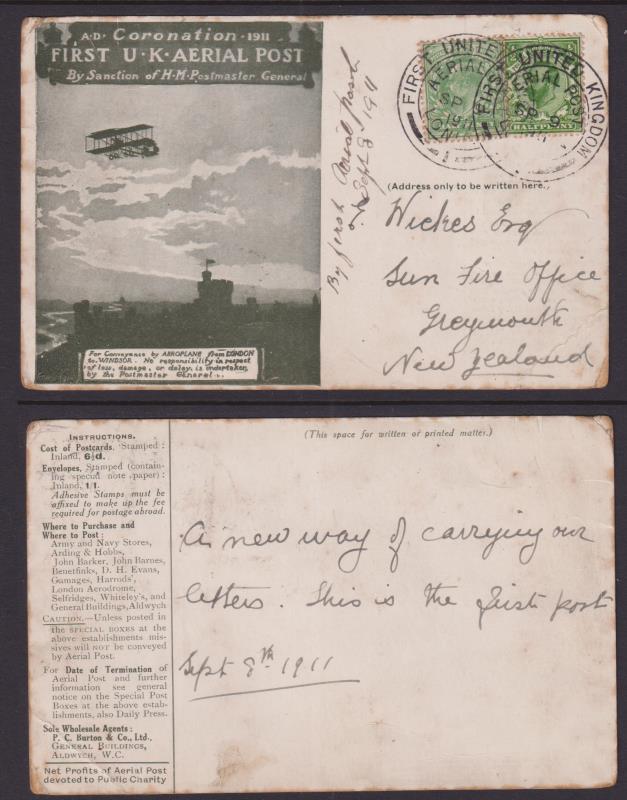 A·D· Coronation · 1911
FIRST U·K·AERIAL POST
By Sanction of H·M·Postmaster General
For Conveyance by AEROPLANE from LONDON
to WINDSOR. No responsibility in respect
of loss, damage, or delay, is undertaken
by the Postmaster General.
By first Aerial post
Sept 8 1911
FIRST UNITED KINGDOM
AERIAL POST
SP
FIRST UNITED KINGDOM
AERIAL POST
SP 9
HALFPENNY
(Address only to be written here.)
Wickes Esq
Sun Fire Office
Greymouth
New Zealand
INSTRUCTIONS.
Cost of Postcards, Stamped:
Inland, 6½d.
Envelopes, Stamped (contain-
ing special note paper):
Inland, 1/1.
Adhesive Stamps must be
affixed to make up the fee
required for postage abroad.
Where to Purchase and
Where to Post:
Army and Navy Stores,
Arding & Hobbs,
John Barker, John Barnes,
Benetfinks, D. H. Evans,
Gamages, Harrods',
London Aerodrome,
Selfridges, Whiteley's, and
General Buildings, Aldwych
CAUTION.—Unless posted in
the SPECIAL BOXES at the
above establishments mis-
sives will NOT be conveyed
by Aerial Post.
For Date of Termination of
Aerial Post and further
information see general
notice on the Special Post
Boxes at the above estab-
lishments, also Daily Press.
Sole Wholesale Agents:
P. C. Burton & Co., Ltd.,
GENERAL BUILDINGS,
ALDWYCH, W.C.
Net Profits of Aerial Post
devoted to Public Charity
(This space for written or printed matter.)
A new way of carrying our
letters. This is the first post
Sept 8th 1911